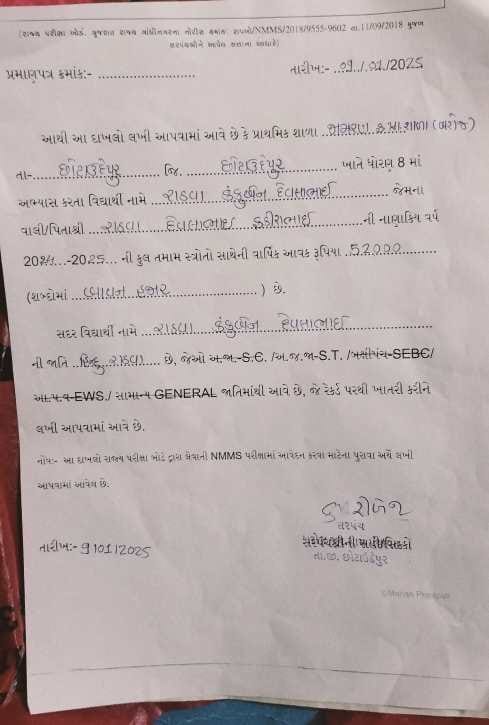 (રાજ્ય પરીક્ષા બોર્ડ, ગુજરાત રાજ્ય ગાંધીનગરના નોટીસ ક્રમાંક: રાપબો/NMMS/2018/9555-9602 તા.11/09/2018 મુજબ
સરપંચશ્રીને આપેલ સત્તાના આધારે)
પ્રમાણપત્ર ક્રમાંક:- ....................
તારીખ:- ..09../.01./2025
આથી આ દાખલો લખી આપવામાં આવે છે કે પ્રાથમિક શાળા
તા-.....છોટાઉદેપુર....... જિ. ....છોટાઉદેપુર....... ખાતે ધોરણ 8 માં
અભ્યાસ કરતા વિદ્યાર્થી નામે ..રાઠવા ....... જેમના
વાલી/પિતાશ્રી ..રાઠવા .......ની નાણાકિય વર્ષ
2024..-2025... ની કુલ તમામ સ્ત્રોતો સાથેની વાર્ષિક આવક રૂપિયા ..52000.....
(શબ્દોમાં ...બાવન હજાર...............) છે.
સદર વિદ્યાર્થી નામે ...રાઠવા
ની જાતિ ..હિન્દુ રાઠવા.... છે, જેઓ અ.જા.-S.C. /અ.જ.જા-S.T. /બક્ષીપંચ-SEBC/
આ.પ.વ-EWS./ સામાન્ય GENERAL જાતિમાંથી આવે છે, જે રેકર્ડ પરથી ખાતરી કરીને
લખી આપવામાં આવે છે.
નોંધ:- આ દાખલો રાજ્ય પરીક્ષા બોર્ડ દ્વારા લેવાની NMMS પરીક્ષામાં આવેદન કરવા માટેના પુરાવા અર્થે લખી
આપવામાં આવેલ છે.
સરપંચ
તારીખ:- 9/01/2025
તા.જી. છોટાઉદેપુર